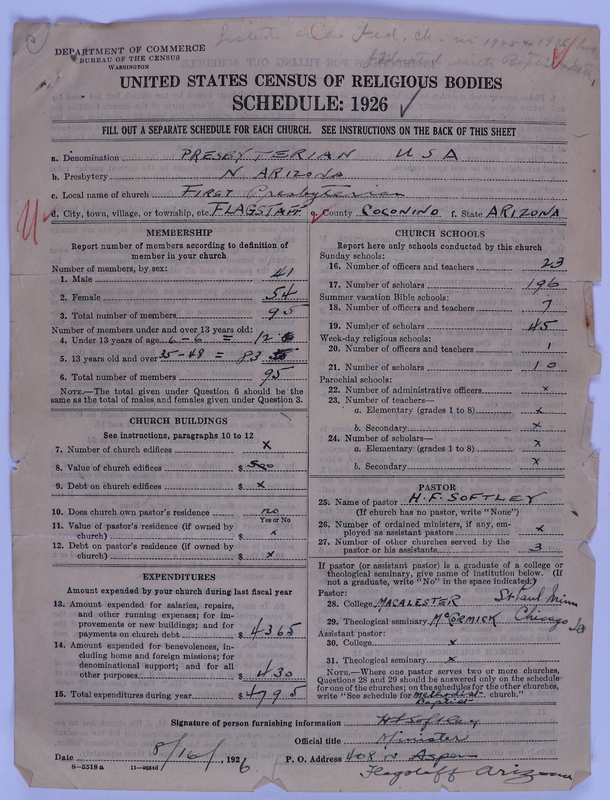 Listed as Fed. Ch in 1925 & 1926
with Baptist
DEPARTMENT OF COMMERCE
BUREAU OF THE CENSUS
WASHINGTON
UNITED STATES CENSUS OF RELIGIOUS BODIES
SCHEDULE: 1926
FILL OUT A SEPARATE SCHEDULE FOR EACH CHURCH. SEE INSTRUCTIONS ON THE BACK OF THIS SHEET
a. Denomination PRESBYTERIAN U S A
b. Presbytery N ARIZONA
c. Local name of church FIRST Presbyterian
d. City, town, village, or township, etc. FLAGSTAFF e. County COCONINO f. State ARIZONA
MEMBERSHIP
Report number of members according to definition of
member in your church
Number of members, by sex:
1. Male 41
2. Female 54
3. Total number of members 95
Number of members under and over 13 years old:
4. Under 13 years of age 6-6 = 12
5. 13 years old and over 35-48 = 83
6. Total number of members 95
NOTE.—The total given under Question 6 should be the
same as the total of males and females given under Question 3.
CHURCH BUILDINGS
See instructions, paragraphs 10 to 12
7. Number of church edifices x
8. Value of church edifices $ 500
9. Debt on church edifices $ x
10. Does church own pastor's residence no
Yes or No
11. Value of pastor's residence (if owned by
church) $ x
12. Debt on pastor's residence (if owned by
church) $ x
EXPENDITURES
Amount expended by your church during last fiscal year
13. Amount expended for salaries, repairs,
and other running expenses; for im-
provements or new buildings; and for
payments on church debt $ 4365
14. Amount expended for benevolences, in-
cluding home and foreign missions; for
denominational support; and for all
other purposes $ 430
15. Total expenditures during year $ 4795
CHURCH SCHOOLS
Report here only schools conducted by this church
Sunday schools:
16. Number of officers and teachers 23
17. Number of scholars 196
Summer vacation Bible schools:
18. Number of officers and teachers 7
19. Number of scholars 45
Week-day religious schools:
20. Number of officers and teachers 1
21. Number of scholars 10
Parochial schools:
22. Number of administrative officers x
23. Number of teachers—
a. Elementary (grades 1 to 8) x
b. Secondary x
24. Number of scholars—
a. Elementary (grades 1 to 8) x
b. Secondary x
PASTOR
25. Name of pastor H.F. SOFTLEY
(If church has no pastor, write "None")
26. Number of ordained ministers, if any, em-
ployed as assistant pastors x
27. Number of other churches served by the
pastor or his assistants 3
If pastor (or assistant pastor) is a graduate of a college or
theological seminary, give name of institution below. (If
not a graduate, write "No" in the space indicated.)
Pastor:
28. College MACALESTER St Paul Minn
29. Theological seminary McCORMICK Chicago Ill
Assistant pastor:
30. College x
31. Theological seminary x
NOTE.—Where one pastor serves two or more churches,
Questions 28 and 29 should be answered only on the schedule
for one of the churches; on the schedules for the other churches,
write "See schedule for Methodist church."
Baptist
Signature of person furnishing information H F Softley
Official title Minister
Date 8/16/, 1926 P. O. Address 408 N Aspen
Flagstaff Arizona
8—5518 a 11—9554d